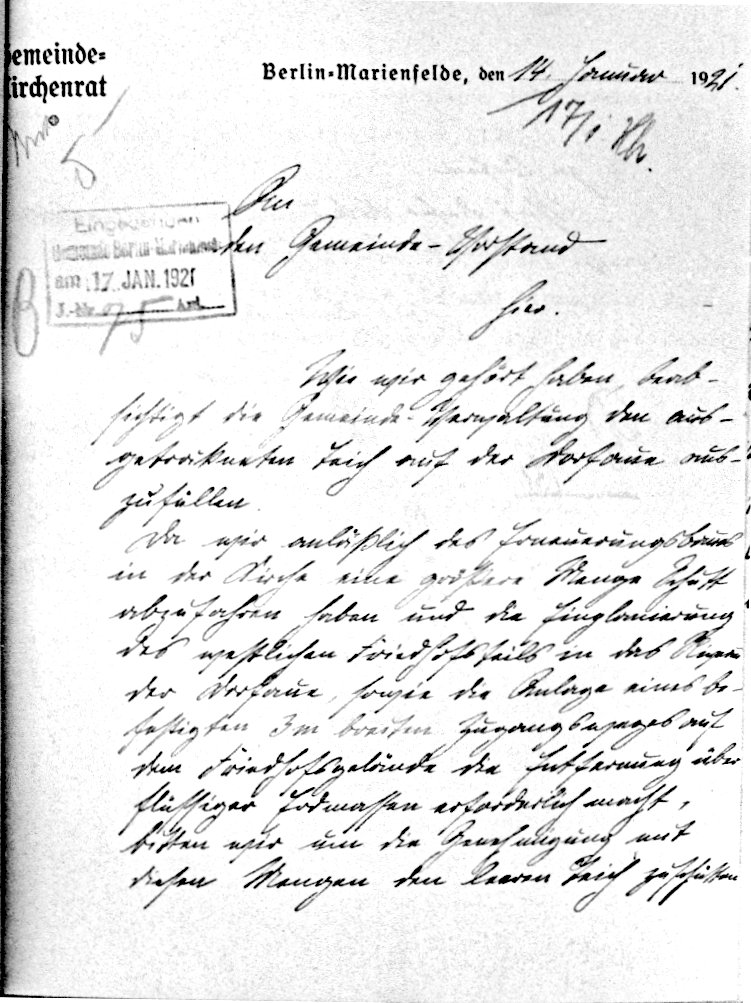 Gemeinde-
Kirchenrat
Berlin-Marienfelde, den 14. Januar 1921.
17/1
5
An
Eingegangen
Gemeinde Berlin-Marienfelde
den Gemeinde-Vorstand
am 17. JAN. 1921
J.-Nr. 75 Ant.
hier.
Wie wir gehört haben, beab-
sichtigt die Gemeinde-Verwaltung den aus-
getrockneten Teich auf der Dorfaue aus-
zufüllen.
Da wir anläßlich des Erneuerungsbaues
in der Kirche eine größere Menge Schutt
abzufahren haben und die Einplanierung
des westlichen Friedhofsteils in das Niveau
der Dorfaue, sowie die Anlage eines be-
festigten 3m breiten Zugangsweges auf
dem Friedhofsgelände die Entfernung über
flüssiger Erdmassen erforderlich macht,
bitten wir um die Genehmigung mit
diesen Mengen den leeren Teich zuschütten